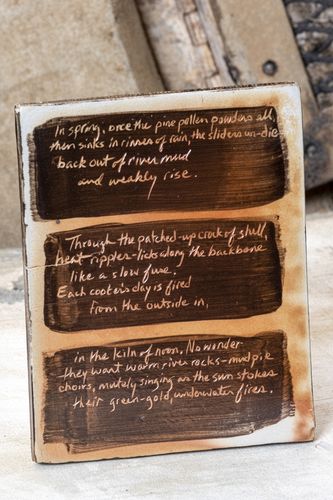 In spring, once the pine pollen powders all,
then sinks in rinses of rain, the sliders un-die
back out of river mud
and weakly rise.
Through the patched-up crock of shell,
heat ripples-licks along the backbone
like a slow fuse.
Each cooter's day is fired
from the outside in,
in the kiln of noon. No wonder
they want warm river rocks-mud pie
choirs, mutely singing as the sun stokes
their green-gold, underwater fires.